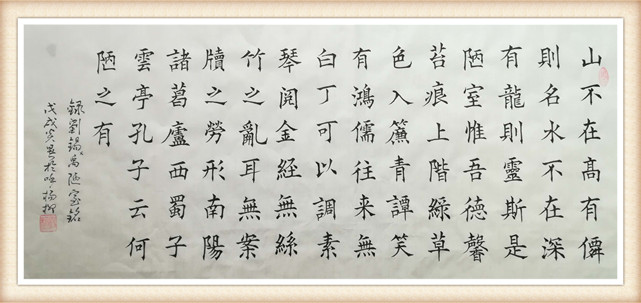 山不在高有僊
則名水不在深
有龍則靈斯是
陋室惟吾德馨
苔痕上階綠草
色入簾青譚笑
有鴻儒往来無
白丁可以調素
琴閱金經無絲
竹之亂耳無案
牘之勞形南陽
諸葛廬西蜀子
雲亭孔子云何
陋之有
録劉錫禹陋室銘
戊戌炎夏於楊柳